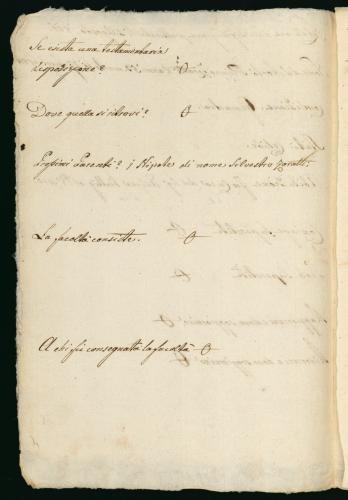 Se esista una testamentaria
disposizione? O
Dove questa si ritrovi? O
Prossimi Parenti? 1 Nipote di nome Silvestro
La facoltà consiste. O
A chi fù consegnatta la facoltà O